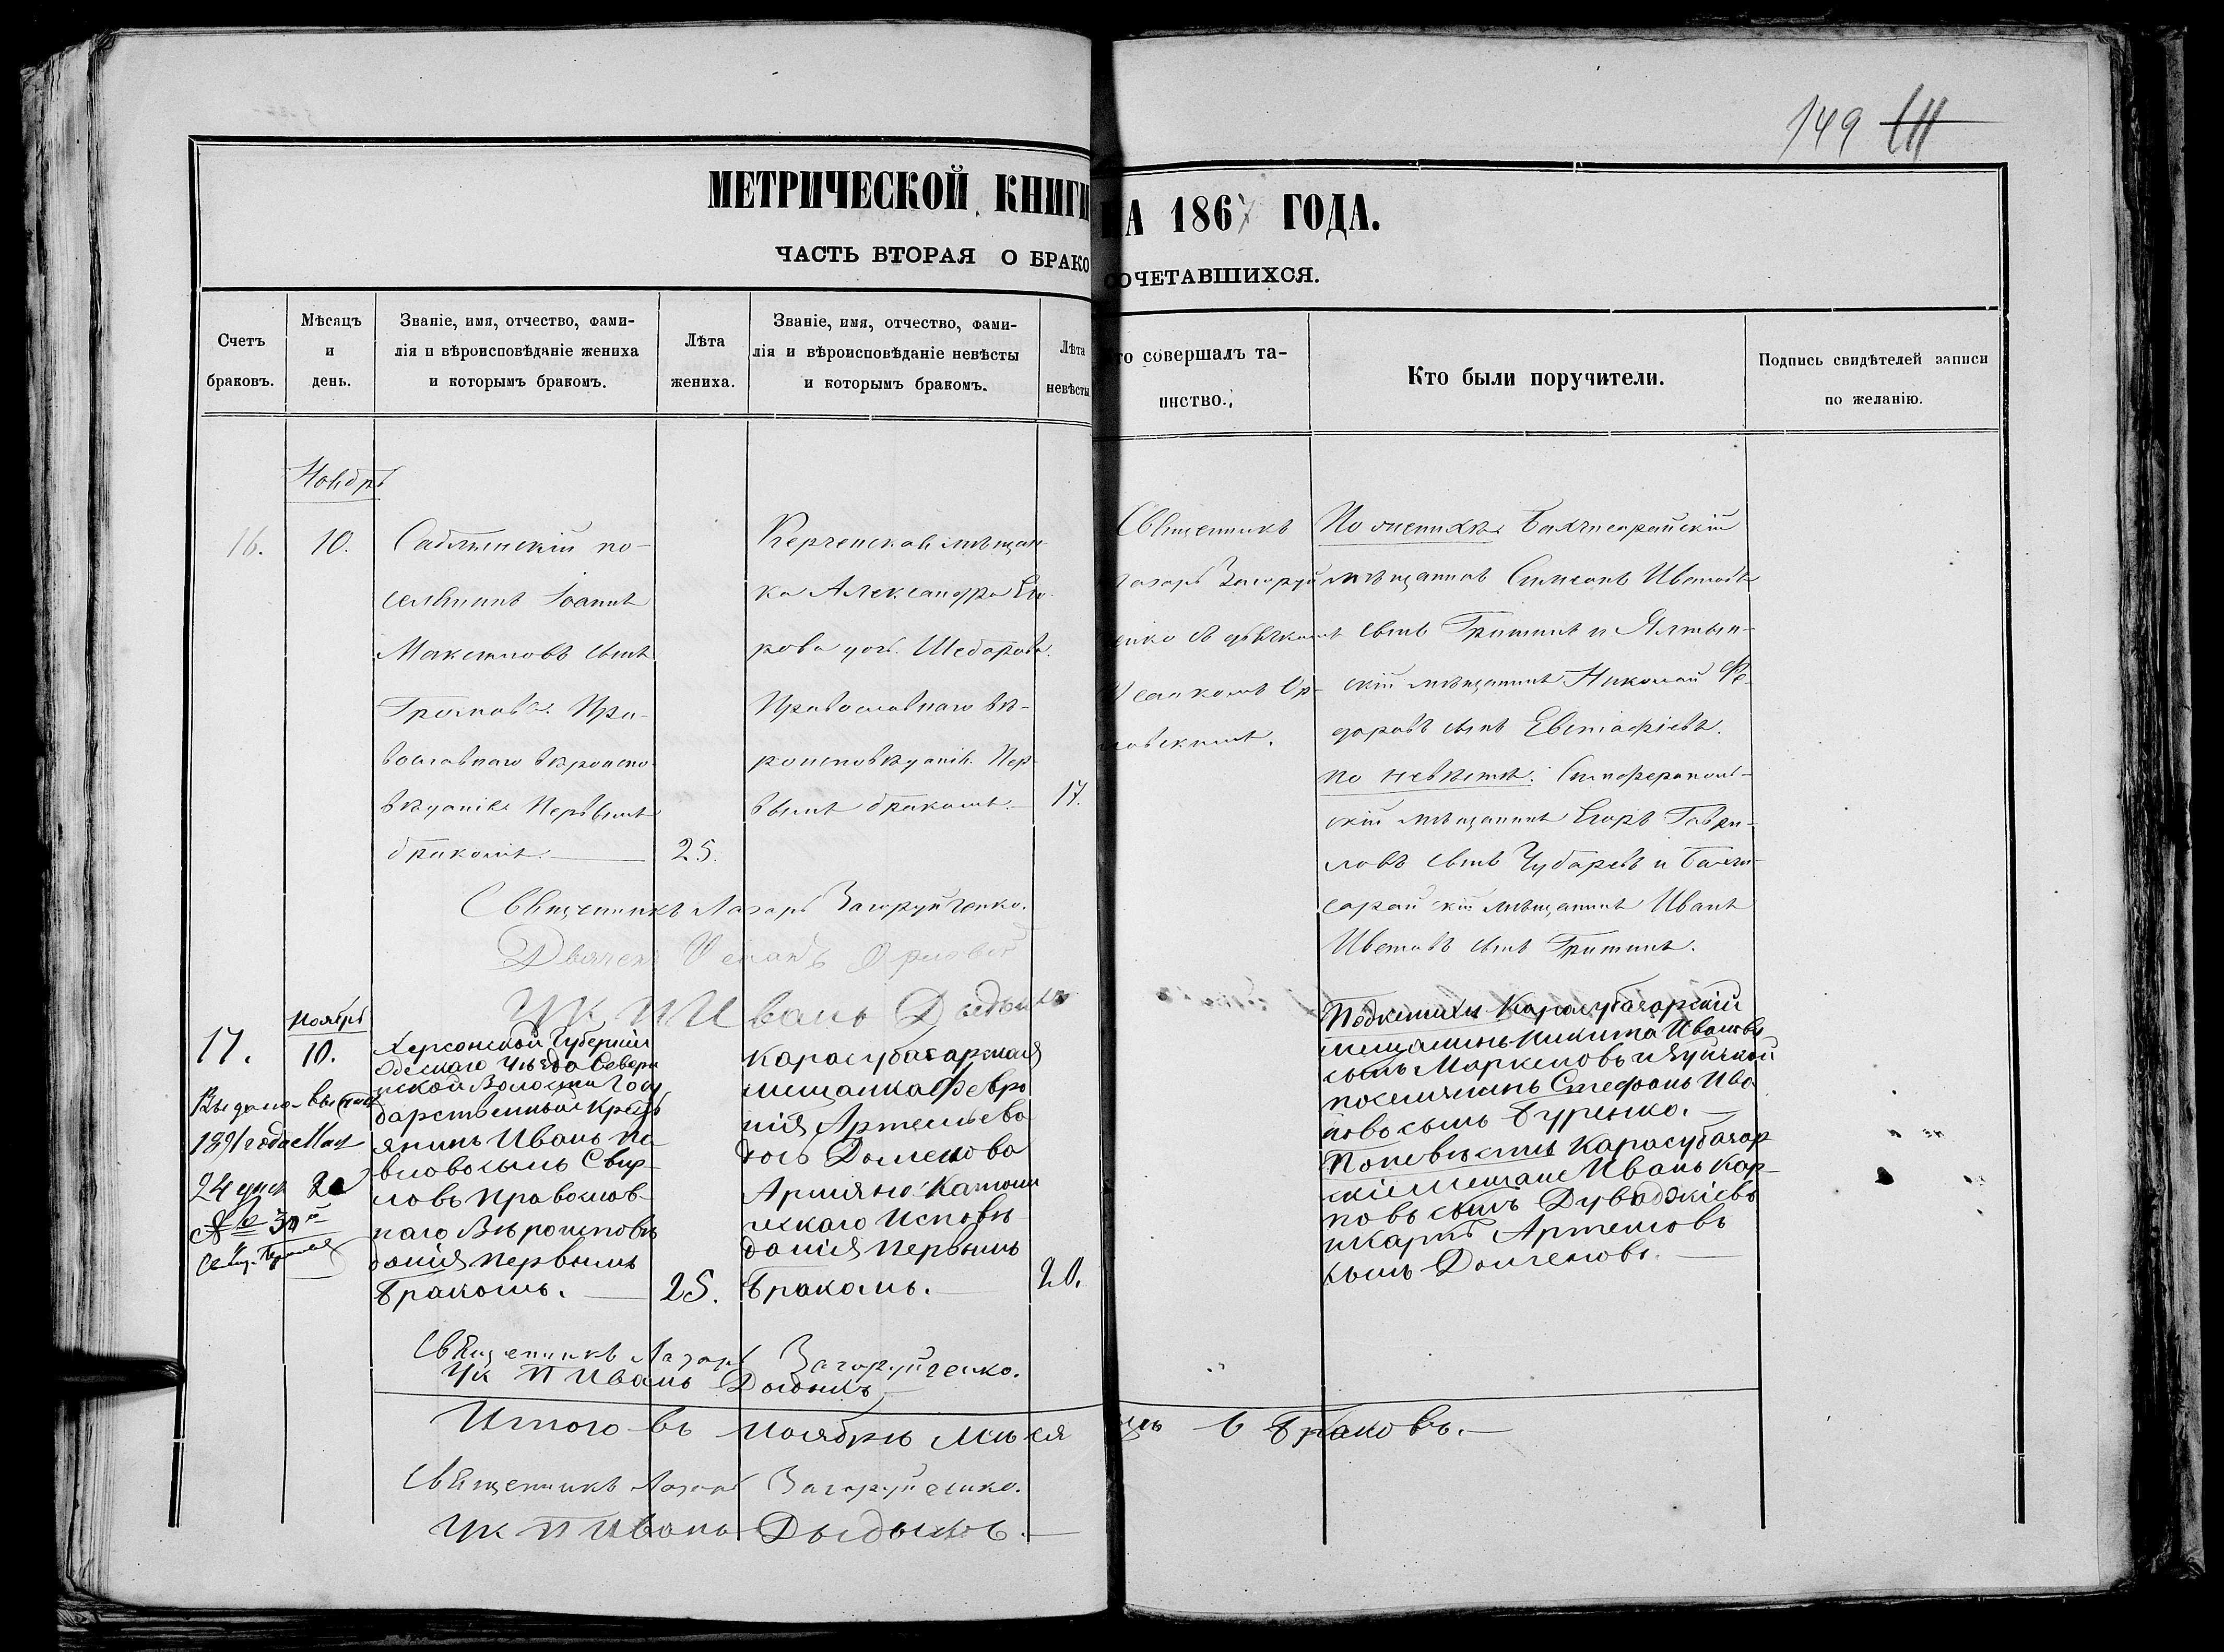 149
МЕТРИЧЕСКОЙ КНИГИ НА 1867 ГОДА.
ЧАСТЬ ВТОРАЯ О БРАКОСОЧЕТАВШИХСЯ.
Счетъ
браковъ.
Мѣсяцъ
и
день.
Званіе, имя, отчество, фами-
лія и вѣроисповѣданіе жениха
и которымъ бракомъ.
Лѣта
жениха.
Званіе, имя, отчество, фами-
лія и вѣроисповѣданіе невѣсты
и которымъ бракомъ.
Лѣта
невѣсты
то совершалъ та-
инство.
Кто были поручители.
Подпись свидѣтелей записи
по желанію.
Ноябрь
16.
10.
Саблынскій по-
селянинъ Іоаннъ
Максимовъ сынъ
Громовъ. Пра-
вославнаго вѣроиспо-
вѣданія Первымъ
бракомъ.
25.
Керченская мѣщан-
ка Александра Его-
рова доч.
Православнаго вѣ-
роисповѣданія. Пер-
вымъ бракомъ.
17.
Священникъ
Лазарь Загоруй
ченко съ дьячкомъ
Исаакомъ Ор-
ловскимъ.
По женихѣ: Бахчисарайскій
мѣщанинъ Симеонъ Ивановъ
сынъ Гритинъ и Ялтын-
скій мѣщанинъ Николай Фе-
доровъ сынъ Евстафіевъ.
по невѣстѣ: Симферополь-
скій мѣщанинъ Егоръ Гаври-
ловъ сынъ Чубаревъ и Бахчи-
сарайскій мѣщанинъ Иванъ
Ивановъ сынъ Гритинъ.
Священникъ Лазарь Загоруйченко.
Дьячекъ Исаакъ Орловск
Ук П Иванъ Дыдык
Ноябрь
17.
10.
1891 года Мая
24 дня
Херсонской Губерніи
Одескаго Уѣзда Севери
нской Волости Госу
дарственный Кресть
янинъ Иванъ Па
вловъ сынъ Свир-
ловъ Православ-
наго Вѣроисповѣ
данія Первымъ
Бракомъ.
25.
Карасубазарская
мещанка Февро
нія Артемьева
дочь Долженова
Армяно Католи
ческаго Исповѣ
данія Первымъ
Бракомъ.
20.
По женихѣ Карасубазарскій
мещанинъ Никита Ивановъ
сынъ Маркеловъ и Зуйскій
поселянинъ Стефанъ Ива
новъ сынъ Буренко.
По невѣстѣ Карасубазар
скіе Мещане Иванъ Кар-
повъ сынъ Дубаджіевъ
и Карпъ Артемовъ
сынъ Долженовъ.
Священникъ Лазарь Загоруйченко.
Ук П Иванъ Дыдыкъ
Итого въ Ноябрѣ Мѣсяцѣ 6 Браковъ.
Священникъ Лазарь Загоруйченко.
Ук П Иванъ Дыдыковъ.